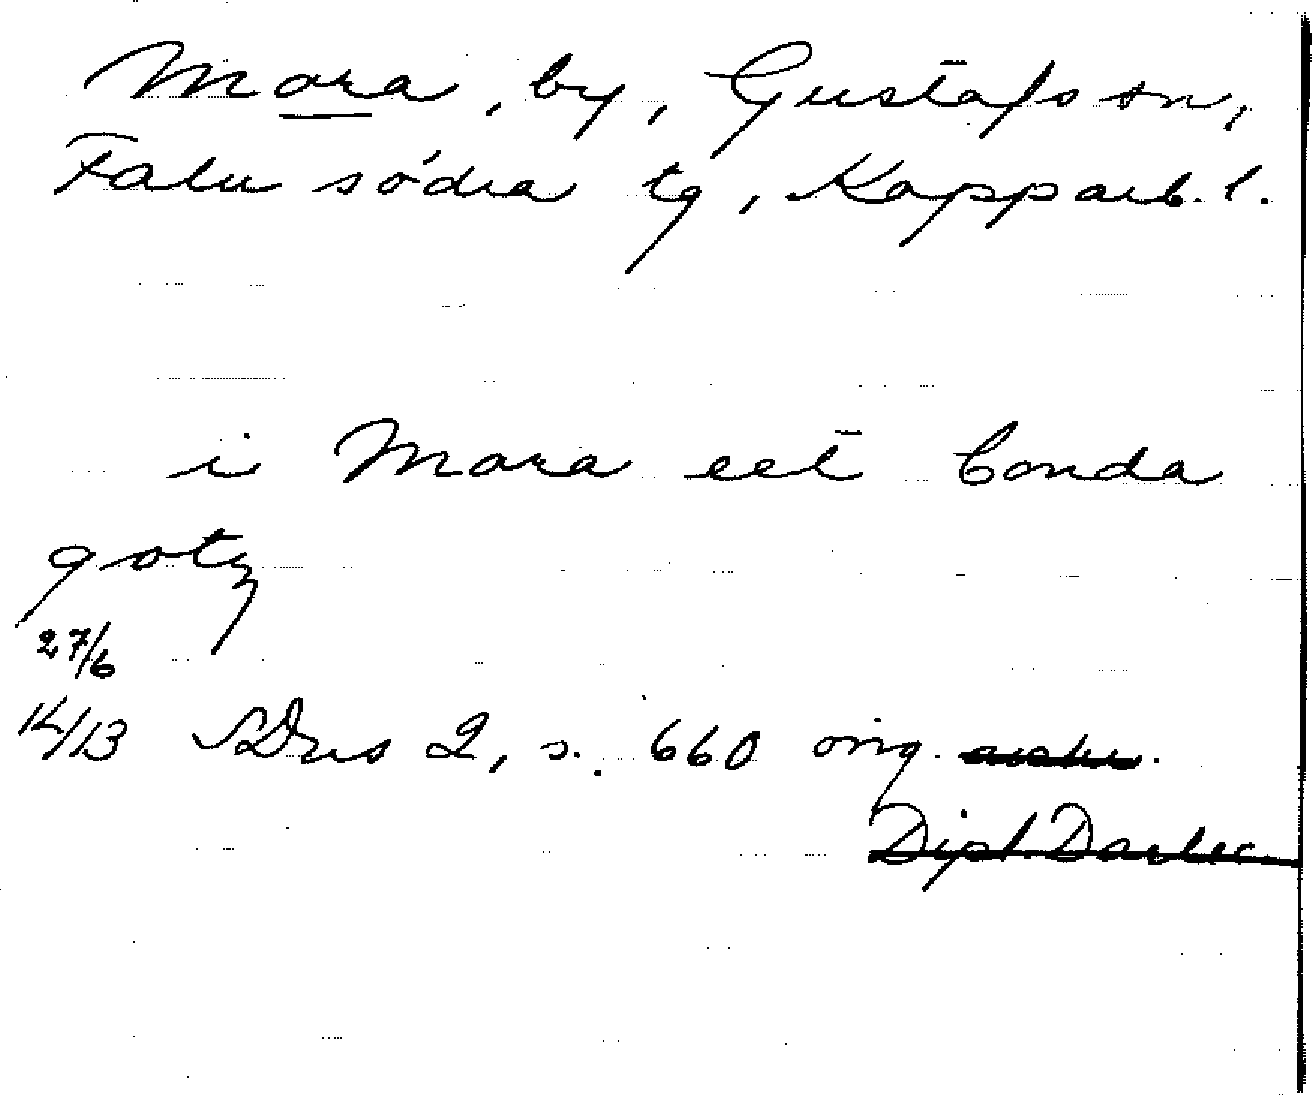 Mora, by, Gustafs sn,
Falu södra tg, Kopparb. l.
i Mora eet bonda
gotz
27/6
14/13 SDns 2, s. 660 orig.
Dipl. Dalec.